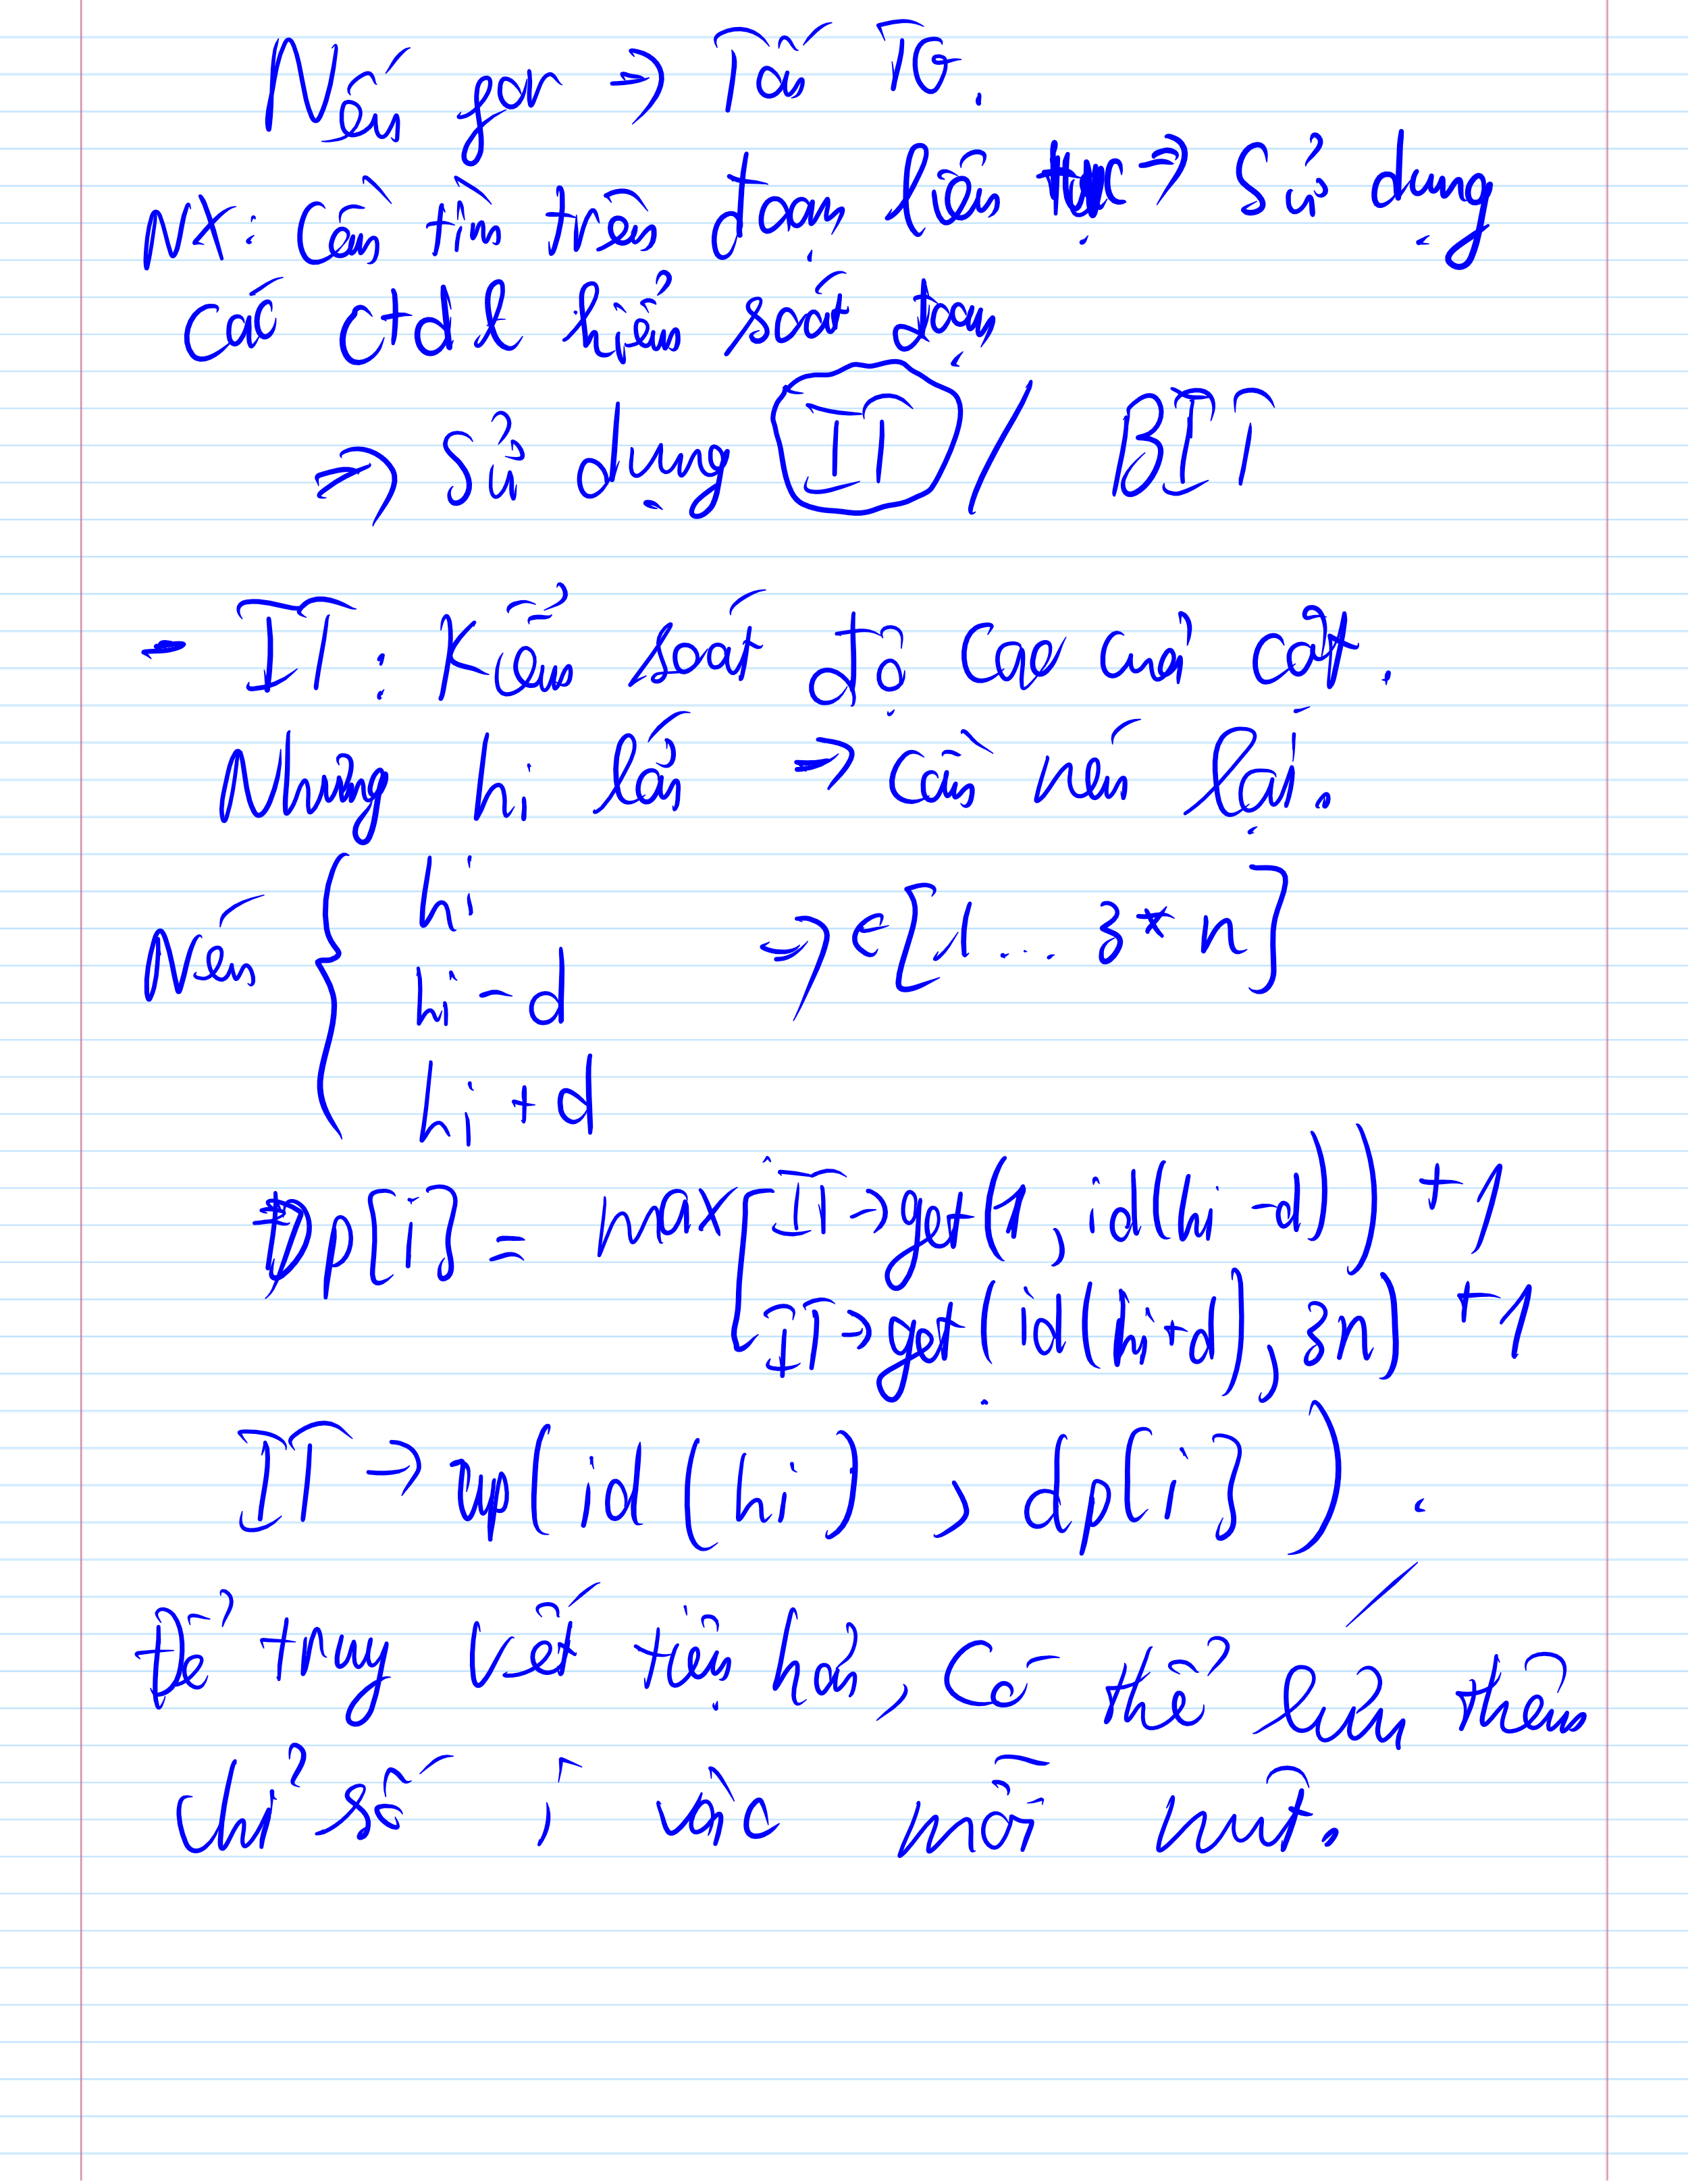 Nếu for → Tối TG.
NX: Cần tìm trên đoạn liên tục ⇒ Sử dụng
các ctdl kiểm soát đoạn
⇒ Sử dụng IT / BIT
- IT: Kiểm soát độ cao của cột.
Nhưng hi lớn → Cần nén lại.
Nén { hi
hi - d ⇒ ∈ [1... 3*n]
hi + d
Dp[i] = max[ IT → get(1, id(hi - d)) + 1
IT → get(id(hi+d), 3n) + 1
IT → up(id(hi), dp[i]).
Để truy vết tiện hơn, Có thể lưu thêm
chỉ số i vào mỗi nút.